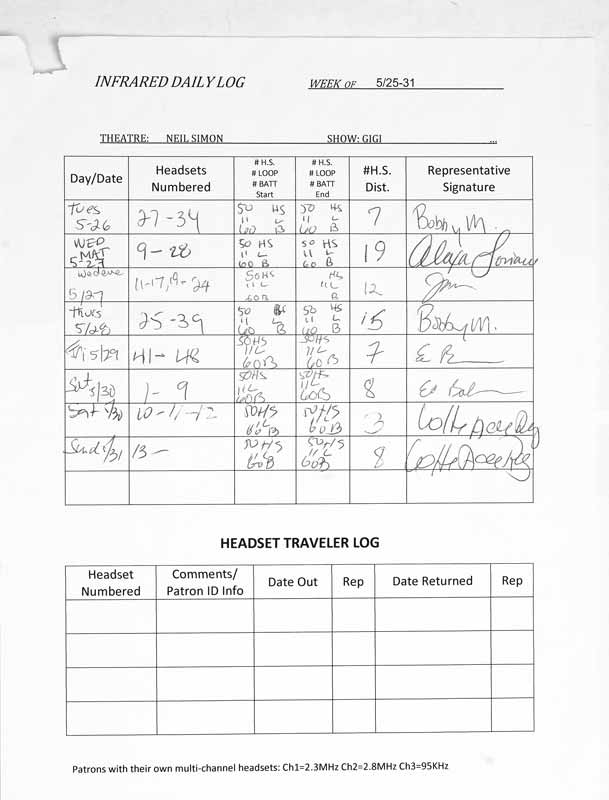 INFRARED DAILY LOG WEEK OF 5/25-31
THEATRE: NEIL SIMON SHOW: GIGI ...
Day/Date Headsets Numbered # H.S. # LOOP # BATT Start # H.S. # LOOP # BATT End #H.S. Dist. Representative Signature
Tues 5-26 27-34 50 HS 11 L 60 B 50 HS 11 L 60 B 7 Bobby M.
WED MAT 5-27 9-28 50 HS 11 L 60 B 50 HS 11 L 60 B 19 Alaxa
5/27 11-17, 19-24 50HS 11L 60B HS 11L B 12
Thurs 5/28 25-39 50 HS 11 L 60 B 50 HS 11 L 60 B 15 Bobby M.
Fri 5/29 41-48 50HS 11L 60B 50HS 11L 60B 7
Sat 5/30 1-9 50HS 11L 60B 50HS 11L 60B 8
Sat 5/30 10-11-12 50HS 11L 60B 50HS 11L 60B 3
Sund 5/31 13- 50HS 11L 60B 50HS 11L 60B 8
HEADSET TRAVELER LOG
Headset Numbered Comments/ Patron ID Info Date Out Rep Date Returned Rep
Patrons with their own multi-channel headsets: Ch1=2.3MHz Ch2=2.8MHz Ch3=95KHz